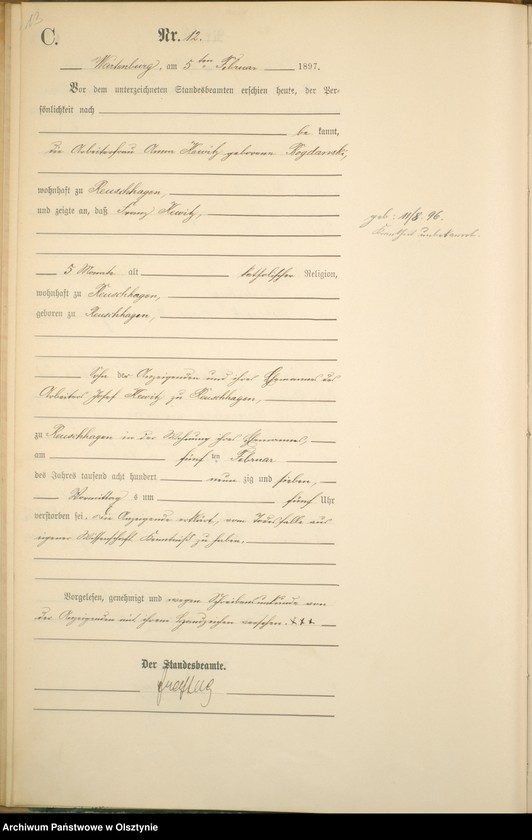 C.
Nr. 12.
Wartenburg, am 5 ten Februar 1897.
Vor dem unterzeichneten Standesbeamten erschien heute, der Per-
sönlichkeit nach
be kannt,
die Arbeiterfrau Anna Hewitz geborene Bogdanski,
wohnhaft zu Reuschhagen,
und zeigte an, daß Franz Hewitz,
geb: 11/8. 96.
Krankheit unbekannt.
5 Monate alt katholischer Religion,
wohnhaft zu Reuschhagen,
geboren zu Reuschhagen,
Sohn der Anzeigenden und ihres Ehemannes des
Arbeiters Josef Hewitz zu Reuschhagen,
zu Reuschhagen in der Wohnung ihres Ehemannes,
am fünf ten Februar
des Jahres tausend acht hundert neun zig und sieben,
Vormittag s um fünf Uhr
verstorben sei. die Anzeigende erklärt, vom Todesfalle aus
eigener Wissenschaft Kenntniß zu haben.
Vorgelesen, genehmigt und wegen Schreibensunkunde von
der Anzeigenden mit ihrem Handzeichen versehen. +++
Der Standesbeamte.
Archiwum Państwowe w Olsztynie